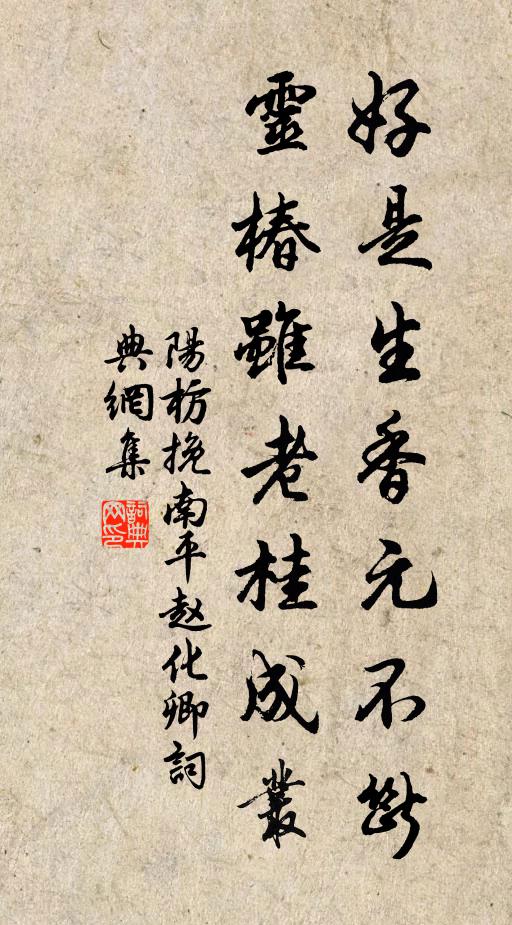 好是生香元不斷
靈椿雖老桂成叢
陽枋挽南平赵化卿詞
典網集
詞典網印